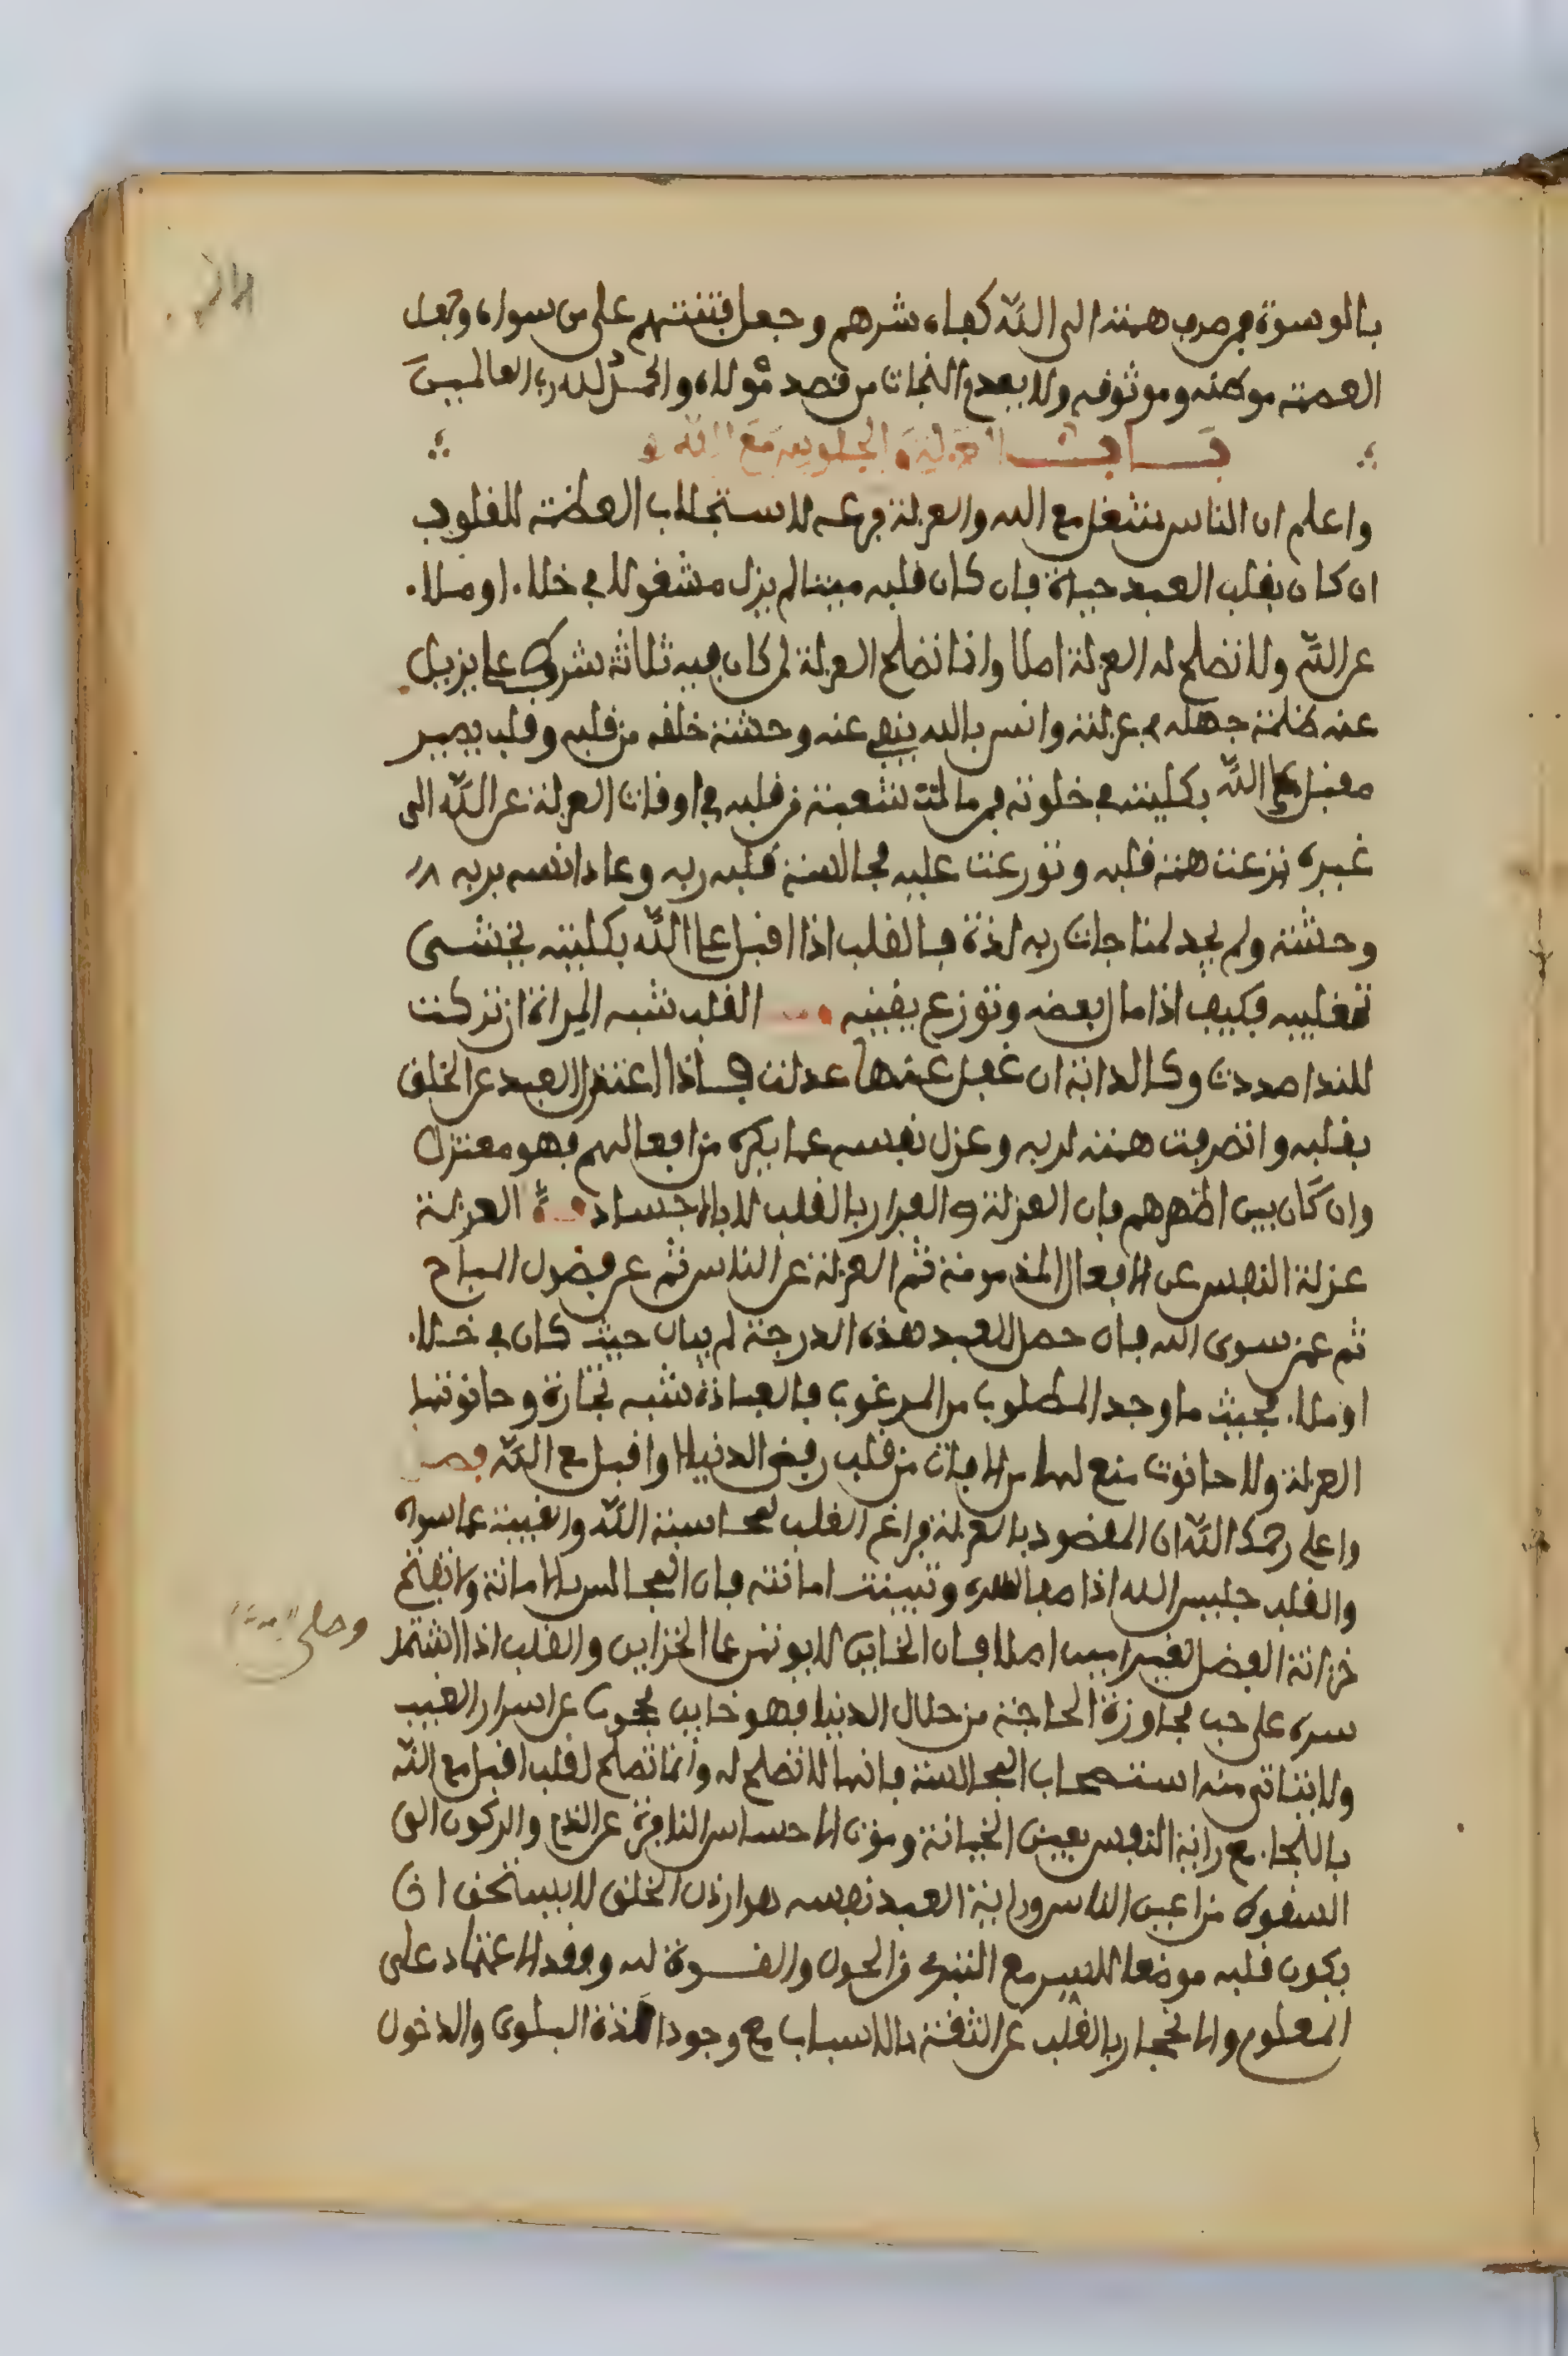 بالوسوة فمن صرف همته الى اللّه كفاه شرهم وجعل فتنتهم على من سواه وجعل
العصمة موطنه وموثوفه ولا يعدم النجات من قصد مولاه والحمد لله رب العالمين
بـاب العزلة والجلوس مع اللّه
واعلم ان الناس تشغل مع الله والعزلة فرعه لاستجلاب العظمة للقلوب
ان كان بقلب العبد حياة فان كان قلبه ميتا لم يزل مشغولا في خلاء او ملاء
عن اللّه ولا تصلح له العزلة اصلا وانما تصلح العزلة لمن كان فيه ثلاثة شروط علم يزيل
عنه ظلمة جهله في عزلته وانس بالله ينفي عنه وحشة خلقه من قلبه وقلب يصير
مقبل على اللّه بكليته في خلوته فمن مالت شعبة من قلبه في اوقات العزلة عن اللّه الى
غيره نزعت همة قلبه وتورعت عليه مجالسة قلبه ربه وعاد انسه بربه
وحشة ولم يجد لمناجات ربه لذة فالقلب اذا اقبل على اللّه بكليته يخشى
تقليبه فكيف اذا مال بعضه وتوزع يقينه القلب شبه المراة ان تركت
للندا صددت وكالدابة ان غفل عنها عدلت فاذا اعتزل العبد عن الخلق
بقلبه وانصرفت همته لربه وعزل نفسه عما يكره من افعالهم فهو معتزل
وان كان بين اظهرهم فان العزلة و الفرار بالقلب لا بالاجساد العزلة
عزلة النفس عن الافعال المذمومة ثم العزلة عن الناس ثم عن فضول المباح
ثم عن سوى الله فان حصل للعبد هذه الدرجة لم يبال حيث كان في خلاء
او ملاء بحيث ما وجد المطلوب من المرغوب فالعبادة شبه تجارة وحانوتها
العزلة ولا حانوت منع لها من الافات من قلب رفض الدنيا واقبل مع اللّه فصل
واعلم رحمك اللّه ان المقصود بالعزلة فراغ القلب لمحاسبة اللّه والغيبة عما سواه
والقلب جليس الله اذا صفا سره وتبينت امانته فان المجالس بالامانة ولا تفتح
خزانة الفضل لغير امين اصلا فان الخاين لا يوتمن على الخزاين والقلب اذا اشتمل
سره على حب مجاوزة الحاجة من حلال الدنيا فهو خاين محجوب عن اسرار الغيب
ولا يتاتى منه استصحاب المجالسة فانها لا تصلح له وانما تصلح لقلب اقبل مع اللّه
بالنجاء مع راية النفس بعين الخيانة وموت الاحساس النافرة عن الذم والركون الى
السقوط من اعين الناس وراية العبد نفسه هو ارذل الخلق لا يستحق ان
يكون قلبه موضعا للسر مع التبري من الحول والقـوة له وفقد الاعتماد على
المعلوم والانحجار بالقلب عن الثقة بالاسباب مع وجود لذة البلوى والدخول